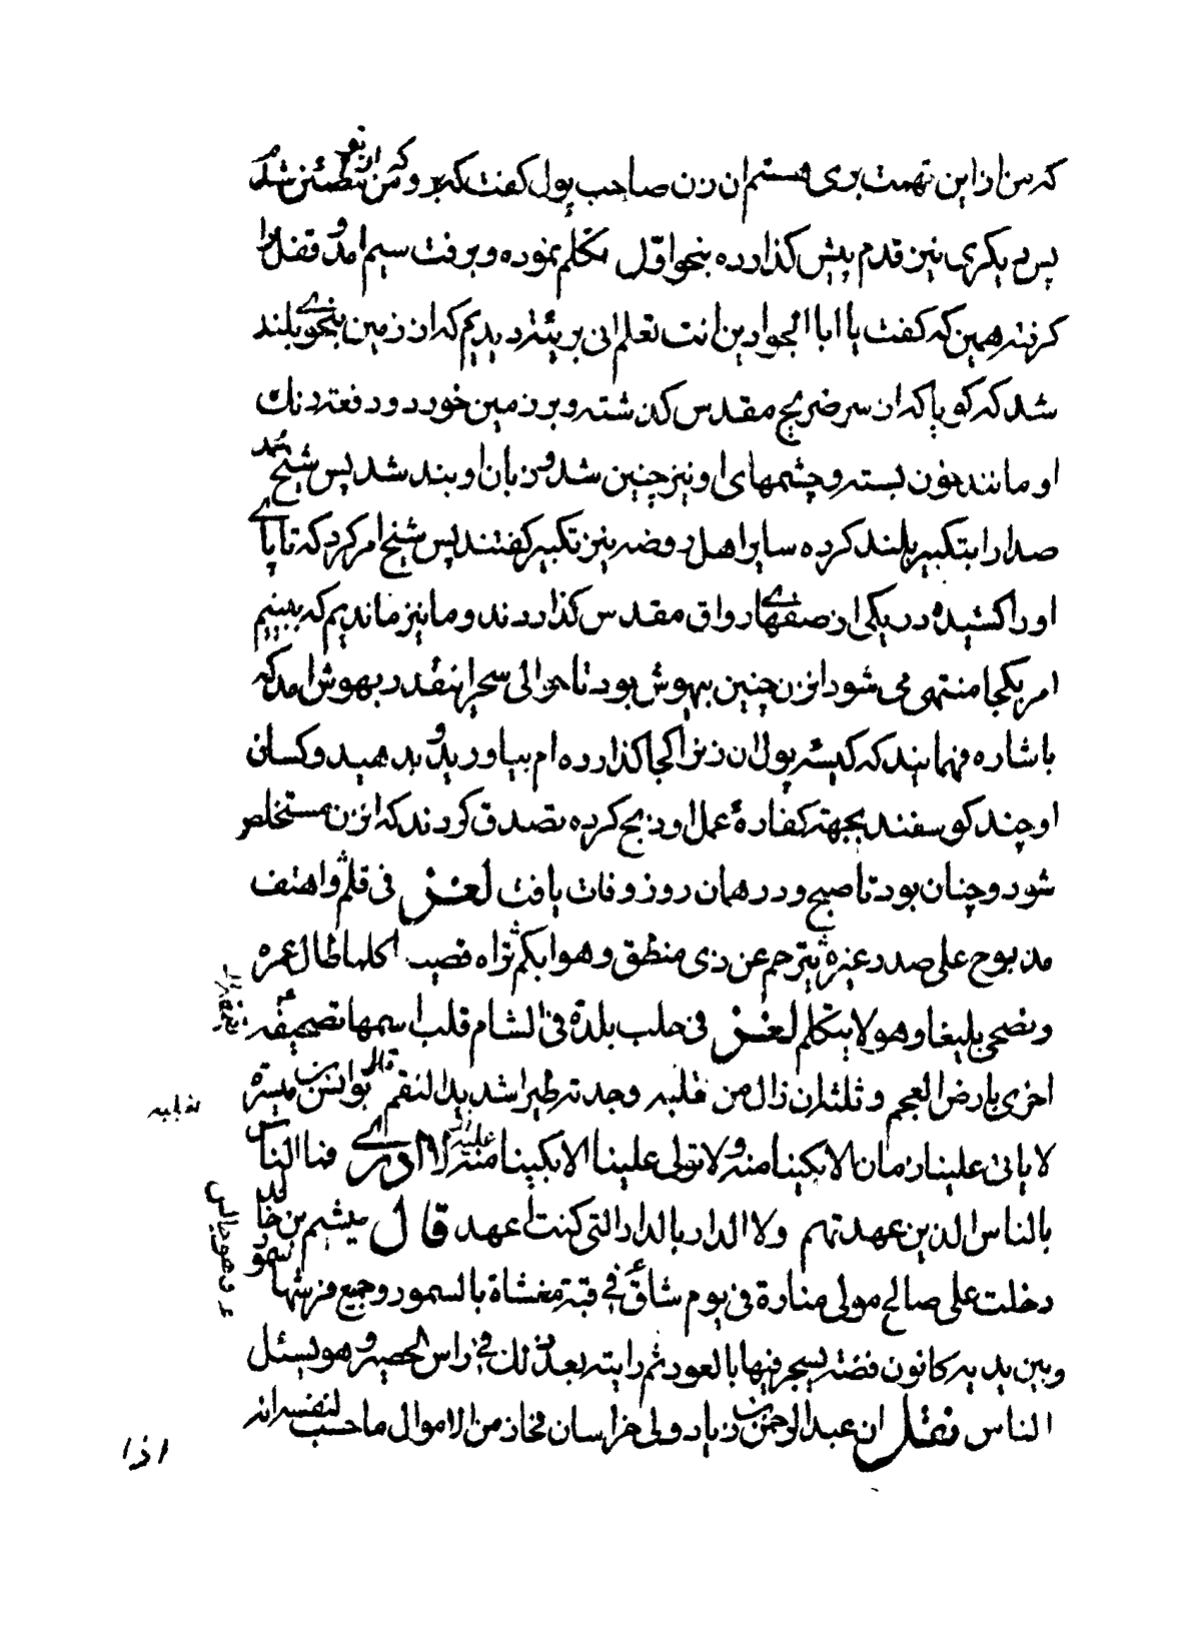 که من ازاین تهمت بری هستم ان زن صاحب پول کفت که برو که من از تو مطمئن شدم
پس دیکری نیز قدم پیش کذارده بنحو اوّل تکلم نموده و برفت سیم امد و قفل را
کرفته همین که کفت یا ابا الجوادین انت تعلم انی بریئة دیدیم که از زمین بنحوی بلند
شد که کویا که از سر ضریح مقدس کذشته و بر زمین خورد و دفعته رنك
او مانند خون بسته و چشمهای او نیز چنین شد و زبان او بند شد پس شیخ
صدا را بتکبیر بلند کرده سایر اهل روضه نیز تکبیر کفتند پس شیخ امر کرد که تا پای
او را کشیده در یکی از صفهای رواق مقدس کذاردند و ما نیز ماندیم که ببینیم
امر بکجا منتهی می شود انزن چنین بیهوش بود تا حوالی سحر اینقدر بهوش امد که
باشاره فهمانید که کیسه پول ان زنرا کجا کذارده ام بیاورید و بدهید و کسان
او چند کوسفند بجهته کفارهٔ عمل او ذبح کرده تصدق کردند که انزن مستخلص
شود و چنان بود تا صبح و در همان روز وفات یافت لغز فی قلم واهتف
مذبوح علی صدر غیره یترجم عن ذی منطق وهو ابکم تراه قصیرا کلما طال عمره
ویضحی بلیغا وهو لا یتکلم لغز فی حلب بلدة فی الشام قلب اسمها تصحیفه
اخری بارض العجم وثلثه ان زال من قلبه وجدته طیرا شدید النغم قال یونس بن میسرة
لا یاتی علینا زمان الا بکینا منه ولا تولی علینا الا بکینا علیه لا ادری فما الناس
بالناس الذین عهدتهم ولا الدار بالدار التی کنت اعهد قال میثم بن خالد
دخلت علی صالح مولی منارة فی یوم شات فی قبة مغشاة بالسمور وجمیع فرشها سمور
وبین یدیه کانون فضة یسجر فیها بالعود ثم رایته بعد ذلك فی راس الجسر وهو یسئل
الناس نقل ان عبدالرحمن بن زیاد ولی خراسان فحاز من الاموال ما حسب لنفسه انه
اذا